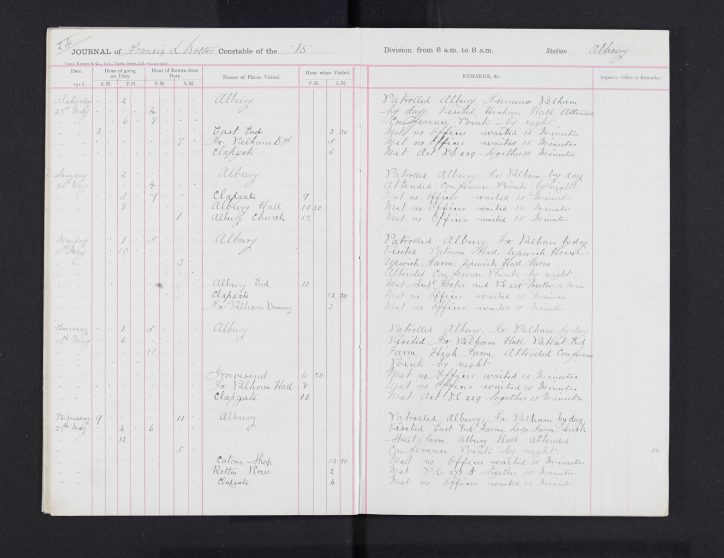 JOURNAL of Francis L Constable of the "B"
Division, from 8 a.m. to 8 a.m. Station Albury
Date. Hour of going on Duty. Hour of Return from Duty. Names of Places Visited. Hour when Visited. REMARKS, &c. Superior Officer's Remarks.
191 A.M. P.M. P.M. A.M. P.M. A.M.
Saturday 2 Albury Patrolled Albury Pelham
23rd May 4 by day Visited Hall Attended
6 8 Conference Points by night
2 East End 3 30 Met no Officer waited 15 Minutes
7 Fx Pelham 5 Met no Officer waited 15 Minutes
Clapgate 6 Met Act P.S 229 together 15 Minutes
Sunday 2 Albury Patrolled Albury, Fx Pelham by day
24th May 4 Attended Conference Points by night
7 Clapgate 9 Met no Officer waited 15 Minutes
8 Albury Hall 10 30 Met no Officer waited 15 Minutes
1 Albury Church 12 Met no Officer waited 15 Minutes
Monday 1 5 Albury Patrolled Albury, Fx Pelham by day
25th May 10 Visited Hall Upwick House
3 Upwick Farm, Upwick Hall Farm
Attended Conference Points by night
Albury End 11 Met Supt and P.S 229 together 15 Min
Clapgate 12 30 Met no Officer waited 15 Minutes
Fx Pelham 2 Met no Officer waited 15 Minutes
Tuesday 1 5 Albury Patrolled Albury, Fx Pelham by day
26th May 6 Visited Fx Pelham Hall Patient End
11 Farm, High Farm, Attended Conference
Points by night
Gravesend 6 30 Met no Officer waited 15 Minutes
Fx Pelham Hall 8 Met no Officer waited 15 Minutes
Clapgate 10 Met Act P.S 229 together 15 Minutes
Wednesday 9 11 Albury Patrolled Albury, Fx Pelham by day
27th May 4 6 Visited East End Farm, Farm,
12 Street Farm Albury Hall Attended
5 Conference Points by night
Eatons Shop 12 30 Met no Officer waited 15 Minutes
Rotten Row 2 Met together 15 Minutes
Clapgate 4 Met no Officer waited 15 Minutes